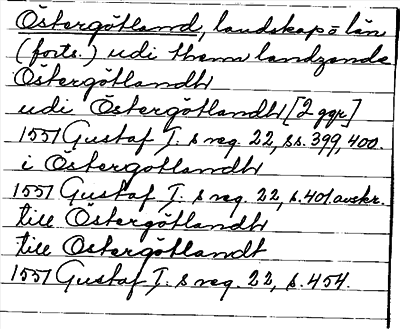 Östergötland, landskap = län
(forts.) udi thenn landzende
Östergötlandh
udi Östergötlandh [2 ggr]
1551 Gustaf I. s reg. 22, ss. 399, 400.
i Östergötlandh
1551 Gustaf I. s reg. 22, s. 401 avskr.
till Östergötlandh
till Östergötlandt
1551 Gustaf I. s reg. 22, s. 454.